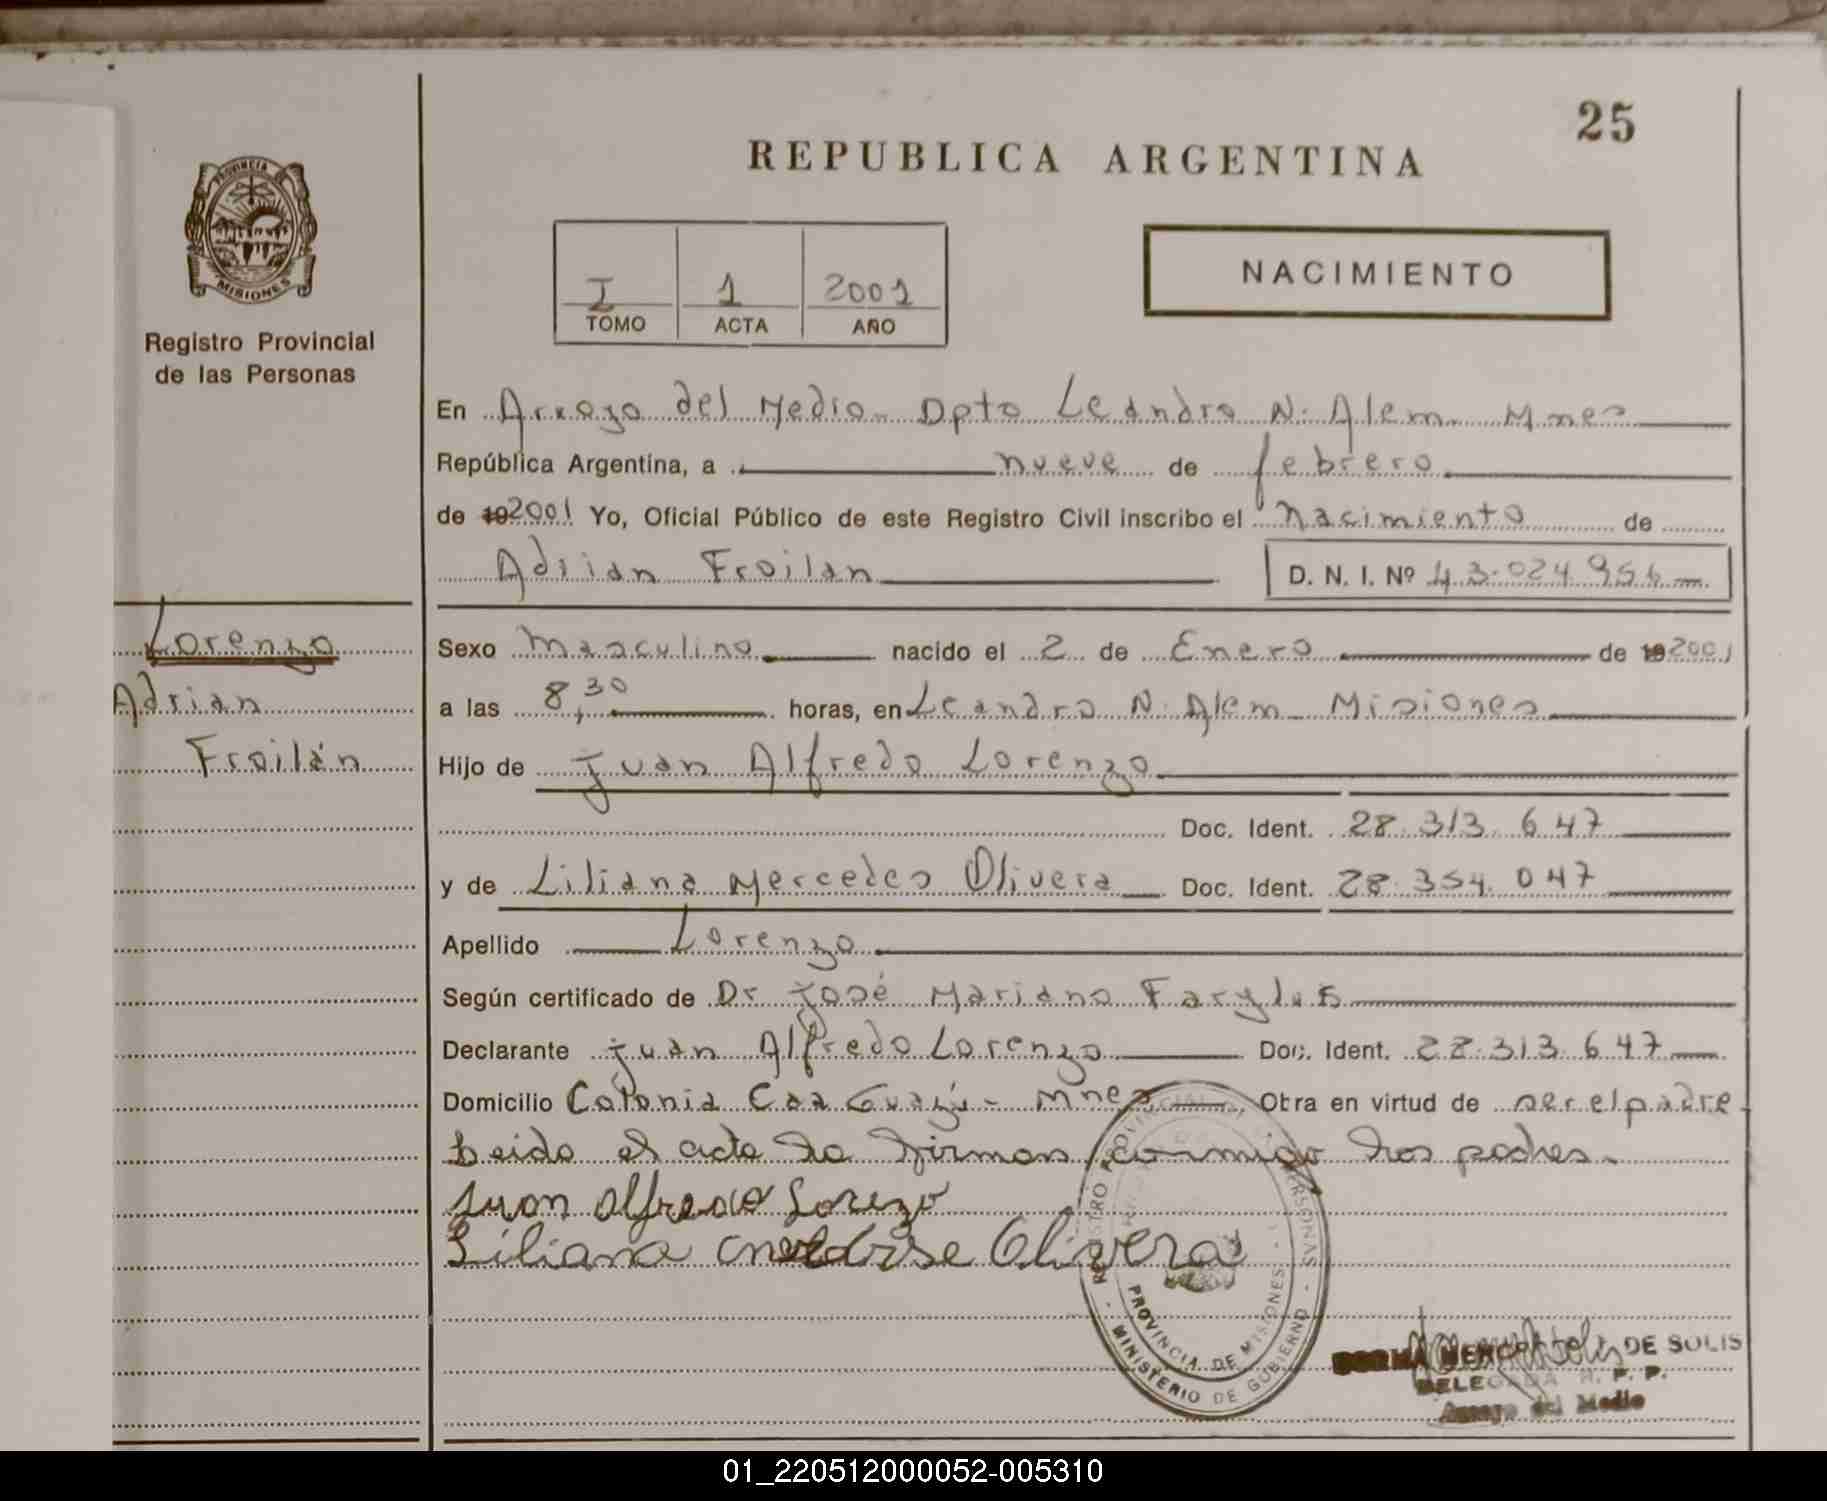 25
REPUBLICA ARGENTINA
PROVINCIA DE
MISIONES
Registro Provincial
de las Personas
I 1 2001
TOMO ACTA AÑO
NACIMIENTO
En Arroyo del Medio Dpto Leandro N. Alem Mnes
República Argentina, a nueve de febrero
de 192001 Yo, Oficial Público de este Registro Civil inscribo el Nacimiento de
Adrian Froilan D. N. I. Nº 43.024.956
Lorenzo
Adrian
Froilán
Sexo Masculino nacido el 2 de Enero de 192001
a las 8,30 horas, en Leandro N. Alem Misiones
Hijo de Juan Alfredo Lorenzo
Doc. Ident. 28.313.647
y de Liliana Mercedes Olivera Doc. Ident. 28.354.047
Apellido Lorenzo
Según certificado de Dr José Mariano
Declarante Juan Alfredo Lorenzo Doc. Ident. 28.313.647
Domicilio Colonia Caa Guazú - Mnes Obra en virtud de ser el padre
Leida el acta la firman conmigo los padres.
Juan Alfredo Lorezo
Liliana Olivera
REGISTRO PROVINCIAL DE LAS PERSONAS - MINISTERIO DE GOBIERNO -
PROVINCIA DE MISIONES -
DE SOLIS
DELEGADA R. P. P.
Arroyo del Medio
01_220512000052-005310